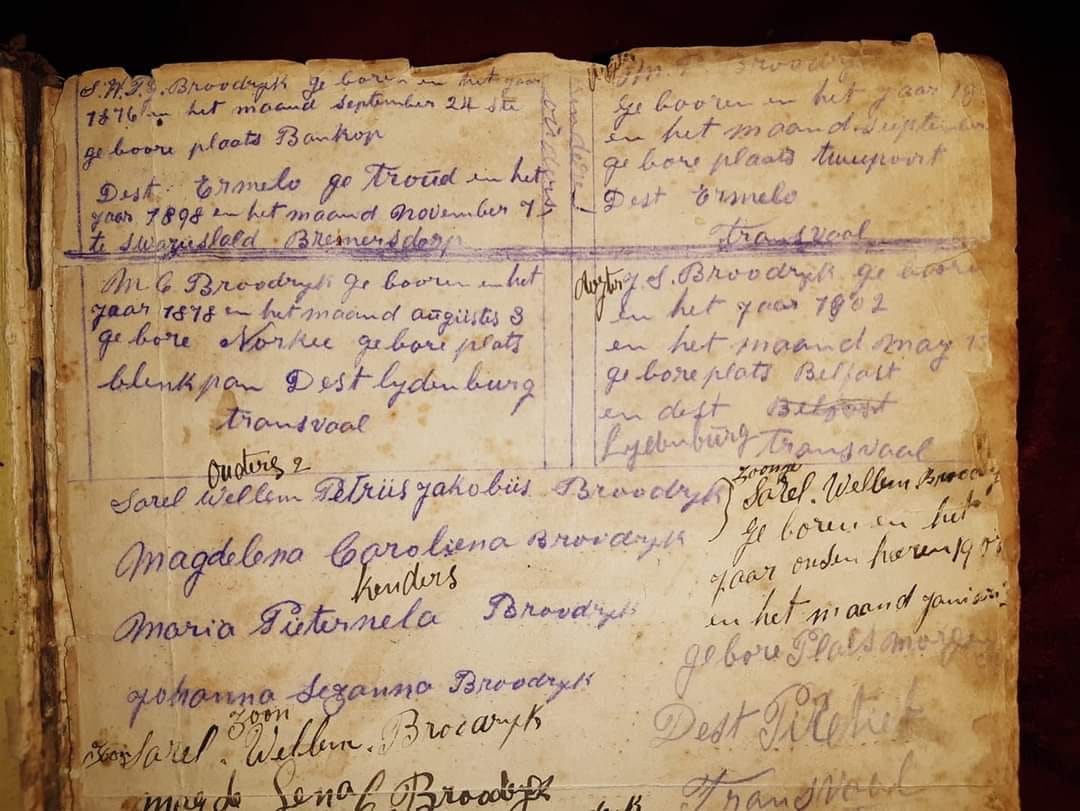 S.W.P.J. Broodryk ge boren en het jaar
1876 en het maand September 24 ste
ge boore plaats Bankop
Dest. Ermelo ge Troud en het
jaar 1898 en het maand november 7
te Swazieslald Bremersdorp
ouders
kendere
M. P. Broodryk
ge booren en het jaar
en het maand September
ge bore plaats tweepoort
Dest Ermelo
transvaal
M C Broodryk ge booren en het
jaar 1878 en het maand augustis 3
ge bore Norkee ge bore plats
blenkpan Dest lydenburg
transvaal
dogter J. S. Broodryk ge boore
en het jaar 1902
en het maand may
ge bore plats Belfast
en dest Belfast
Lydenburg transvaal
ouders 2
Sarel Wellem Petrus Jakobus Broodryk
Magdelena Caroliena Broodryk
kenders
Maria Pieternela Broodryk
Johanna Sezanna Broodryk
zoon
zoon Sarel. Wellem. Broodryk
magde Lena C Broodryk
zoon
Sarel. Wellem Broodry
ge boren en het
jaar onsen heeren 19
en het maand januari
ge bore Plats
Dest Piretief
Transvaal